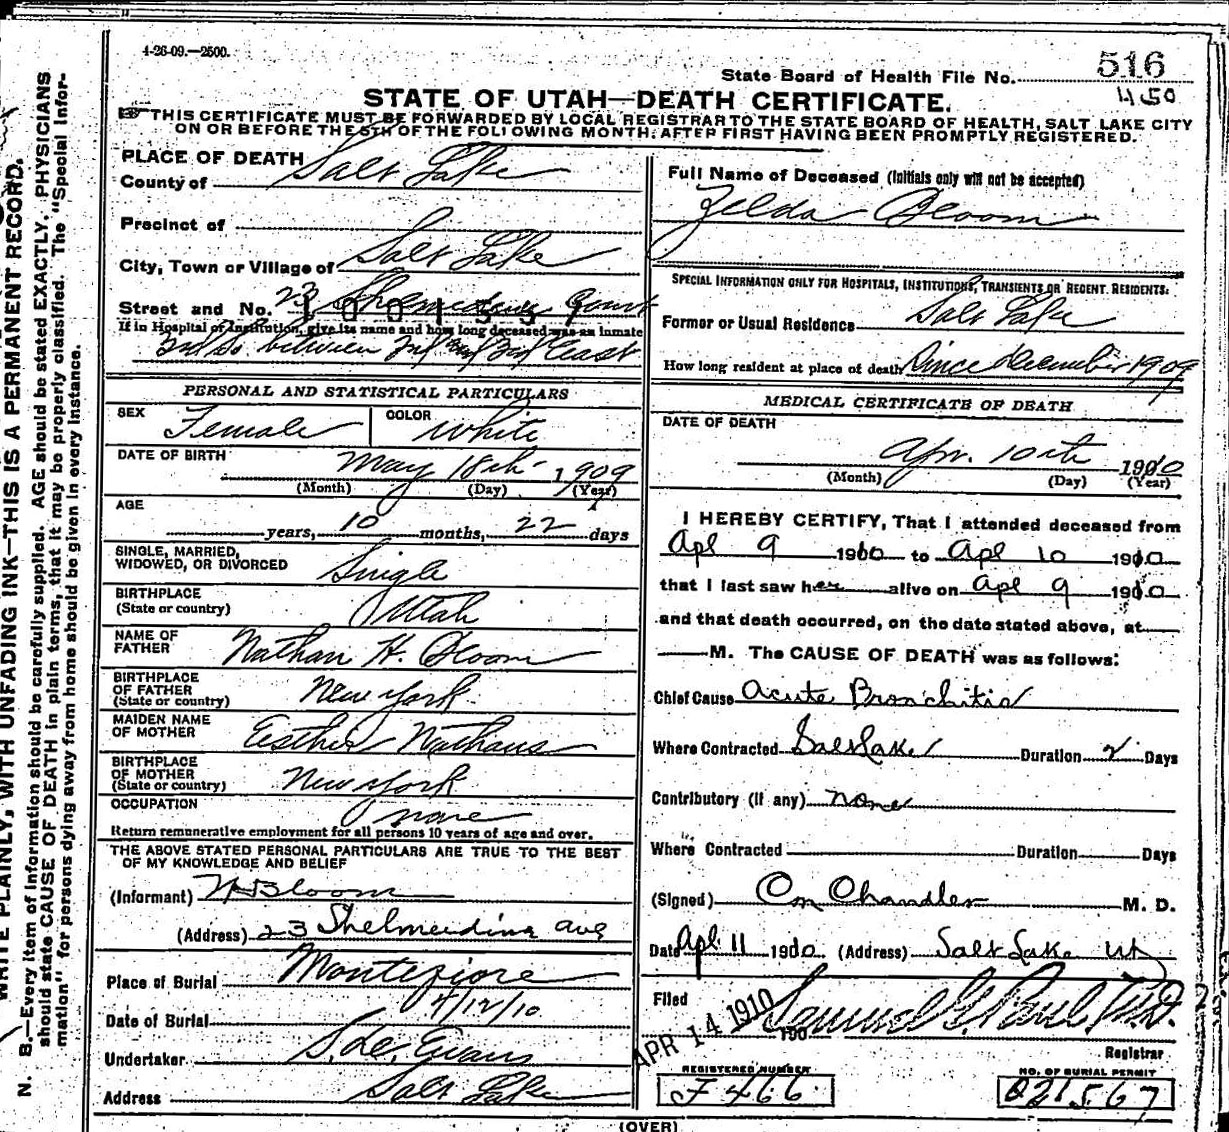 4-26-09.—2500.
State Board of Health File No. 516
450
STATE OF UTAH—DEATH CERTIFICATE.
THIS CERTIFICATE MUST BE FORWARDED BY LOCAL REGISTRAR TO THE STATE BOARD OF HEALTH, SALT LAKE CITY
ON OR BEFORE THE 5TH OF THE FOLLOWING MONTH, AFTER FIRST HAVING BEEN PROMPTLY REGISTERED.
PLACE OF DEATH
County of Salt Lake
Precinct of
City, Town or Village of Salt Lake
Street and No. 23 Court
If in Hospital or Institution, give its name and how long deceased was an inmate
3rd So. between 2nd and 3rd East
PERSONAL AND STATISTICAL PARTICULARS
SEX Female COLOR White
DATE OF BIRTH May 18th 1909
(Month) (Day) (Year)
AGE
years, 10 months, 22 days
SINGLE, MARRIED,
WIDOWED, OR DIVORCED Single
BIRTHPLACE
(State or country) Utah
NAME OF
FATHER Nathan H. Bloom
BIRTHPLACE
OF FATHER
(State or country) New York
MAIDEN NAME
OF MOTHER Esther Nathans
BIRTHPLACE
OF MOTHER
(State or country) New York
OCCUPATION none
Return remunerative employment for all persons 10 years of age and over.
THE ABOVE STATED PERSONAL PARTICULARS ARE TRUE TO THE BEST
OF MY KNOWLEDGE AND BELIEF
(Informant) N H Bloom
(Address) 23 Shelmerdine ave
Place of Burial Montefiore
Date of Burial 4/12/10
Undertaker S. D. Evans
Address Salt Lake
Full Name of Deceased (Initials only will not be accepted)
Zelda Bloom
SPECIAL INFORMATION ONLY FOR HOSPITALS, INSTITUTIONS, TRANSIENTS OR RECENT RESIDENTS.
Former or Usual Residence Salt Lake
How long resident at place of death Since December 1909
MEDICAL CERTIFICATE OF DEATH
DATE OF DEATH
Apr. 10th 1910
(Month) (Day) (Year)
I HEREBY CERTIFY, That I attended deceased from
Apl 9 1910 to Apl 10 1910
that I last saw her alive on Apl 9 1910
and that death occurred, on the date stated above, at
M. The CAUSE OF DEATH was as follows:
Chief Cause Acute Bronchitis
Where Contracted Salt Lake Duration 2 Days
Contributory (if any) none
Where Contracted Duration Days
(Signed) Chandler M. D.
Date Apl 11 1910 (Address) Salt Lake Ut
Filed APR 14 1910 190 Samuel G. Paul, M.D.
Registrar
REGISTERED NUMBER
F 466
NO. OF BURIAL PERMIT
021567
(OVER)
WRITE PLAINLY, WITH UNFADING INK—THIS IS A PERMANENT RECORD.
N. B.—Every item of information should be carefully supplied. AGE should be stated EXACTLY. PHYSICIANS
should state CAUSE OF DEATH in plain terms, that it may be properly classified. The "Special Infor-
mation" for persons dying away from home should be given in every instance.